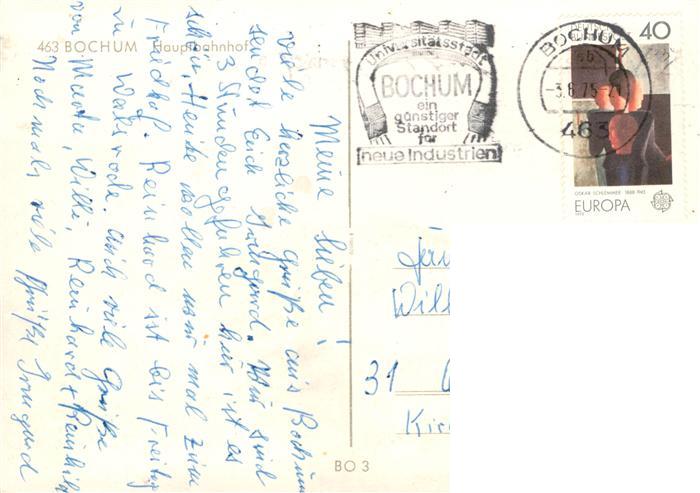 463 BOCHUM Hauptbahnhof
Meine Lieben!
Viele herzliche Grüße aus Bochum
sendet Euch Irmgard. Wir sind
3 Stunden gefahren hier ist es
schön. Heute wollen wir mal zum
Friedhof. Reinhard ist bis Freitag
in Walsrode. Auch viele Grüße
von Mutter, Willi, Reinhard +
Nochmals viele Grüße Irmgard
Universitätsstadt
BOCHUM
ein
günstiger
Standort
für
neue Industrien
BOCHUM
-3.6.75-21
463
40
OSKAR SCHLEMMER 1888-1943
EUROPA
1975
Will
31
BO 3